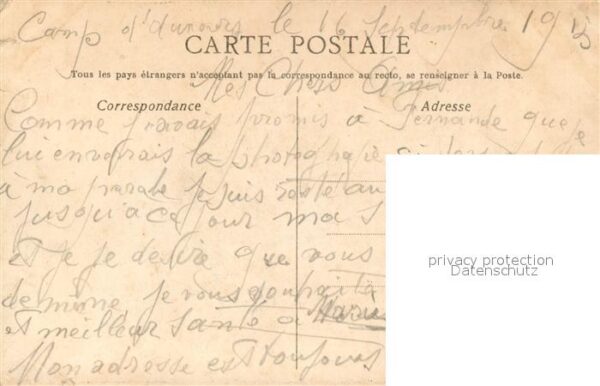 Camp d'Auvours le 16 Septembre 1915
CARTE POSTALE
Tous les pays étrangers n'acceptant pas la correspondance au recto, se renseigner à la Poste.
Mes Chers Amis
Correspondance Adresse
Comme javais promis à Fernande que je
lui enverais la photographie
à ma parole je suis resté au
jusqu'a ce jour ma s
et je desire que vous
de même je vous souhaite
et meilleur santé a
Mon adresse est toujours
privacy protection
Datenschutz